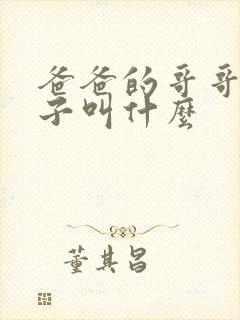 爸爸的哥哥
子叫什麼
董其昌